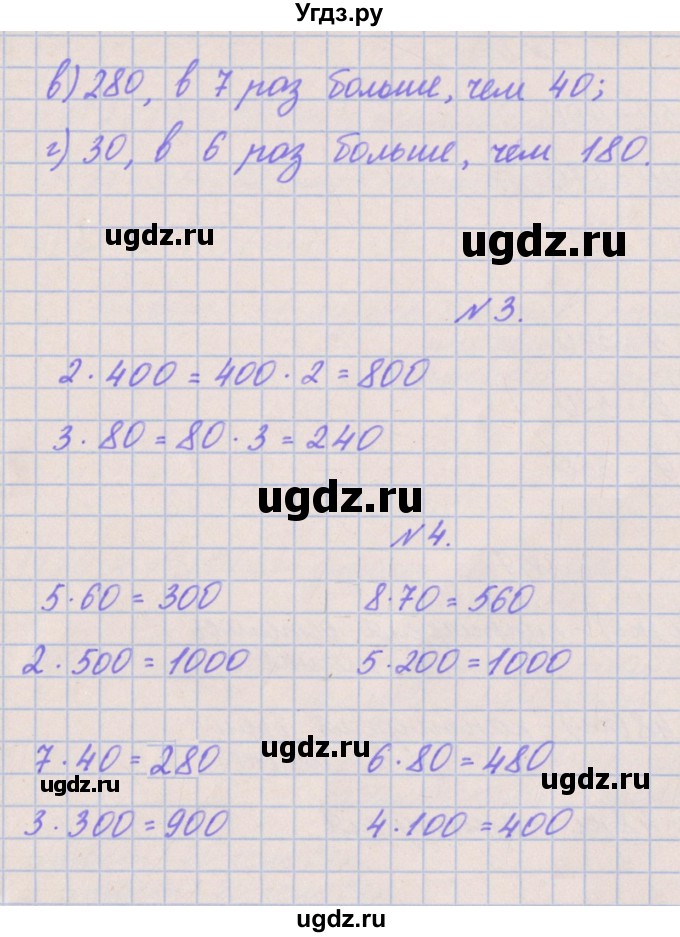 Угдз.ру
в) 280, в 7 раз больше, чем 40;
г) 30, в 6 раз больше, чем 180.
ugdz.ru
ugdz.ru
№ 3.
2 · 400 = 400 · 2 = 800
3 · 80 = 80 · 3 = 240
ugdz.ru
№ 4.
5 · 60 = 300 8 · 70 = 560
2 · 500 = 1000 5 · 200 = 1000
ugdz.ru
7 · 40 = 280 6 · 80 = 480
ugdz.ru ugdz.ru
3 · 300 = 900 4 · 100 = 400
ugdz.ru